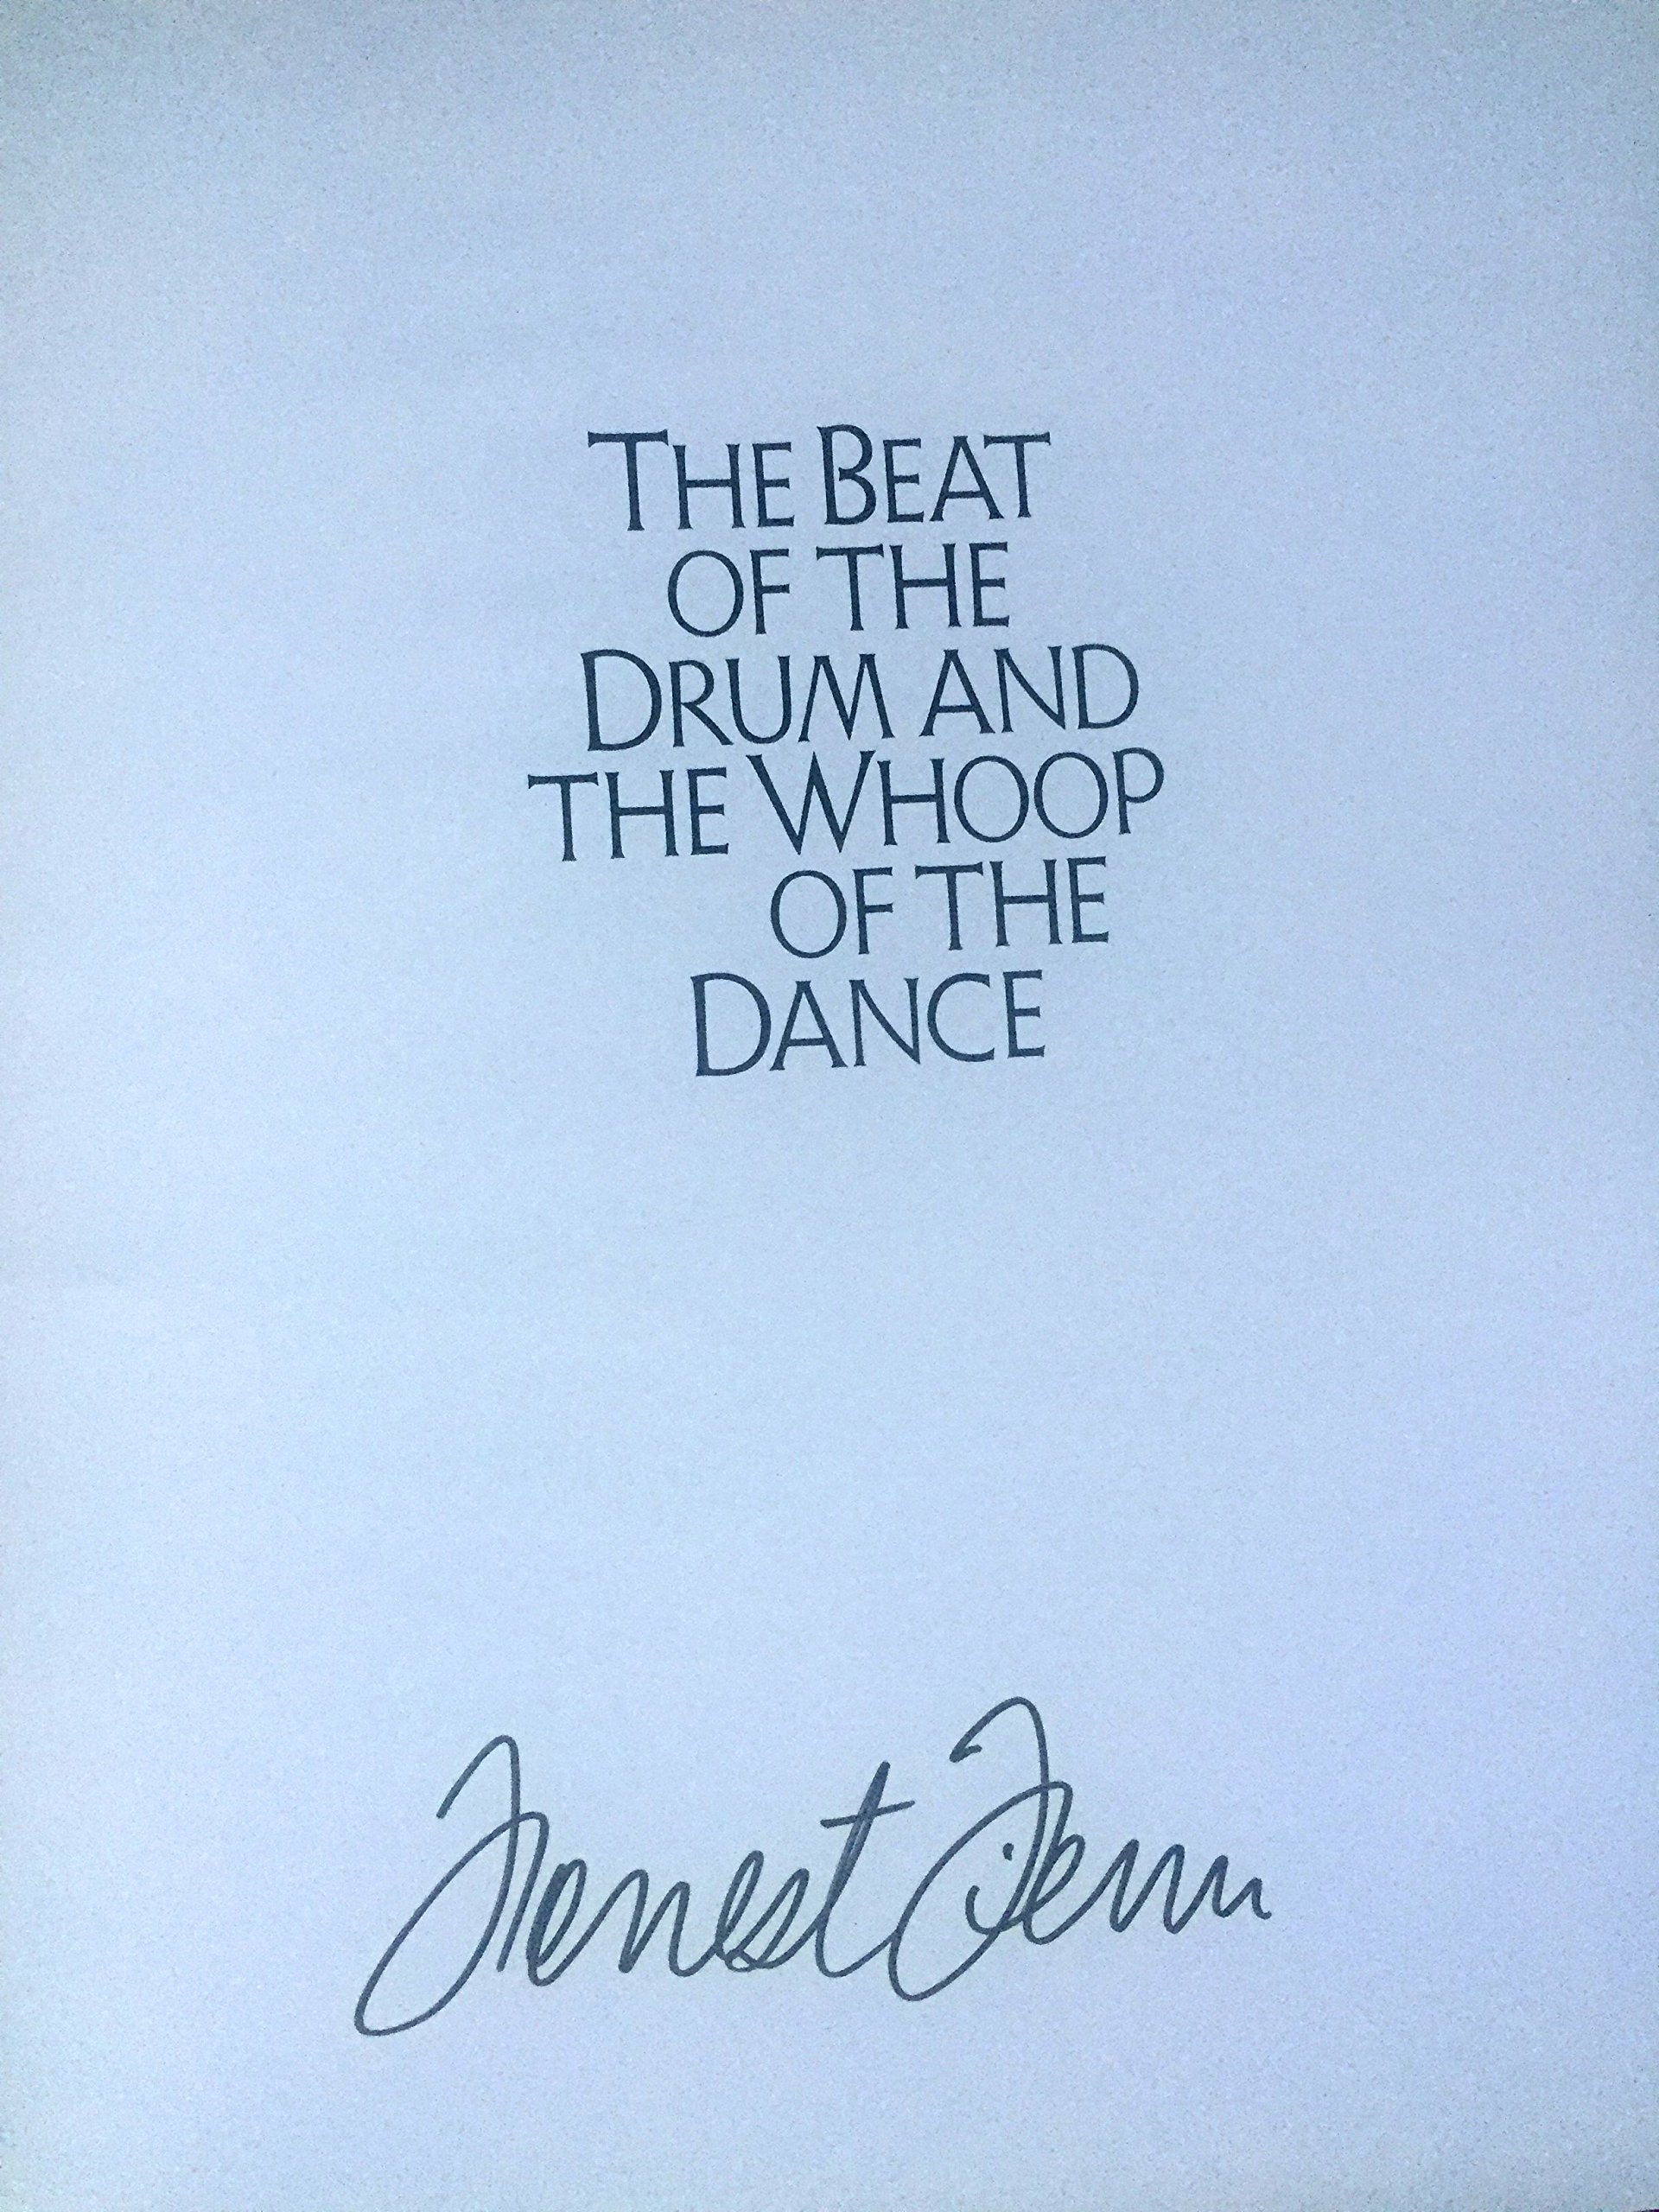 THE BEAT
OF THE
DRUM AND
THE WHOOP
OF THE
DANCE
Forrest Fenn